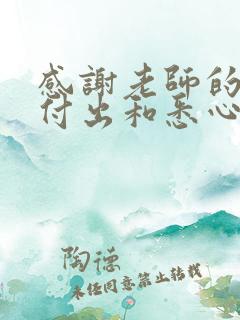 感謝老師的
付出和悉心
陶德
未经同意禁止转载